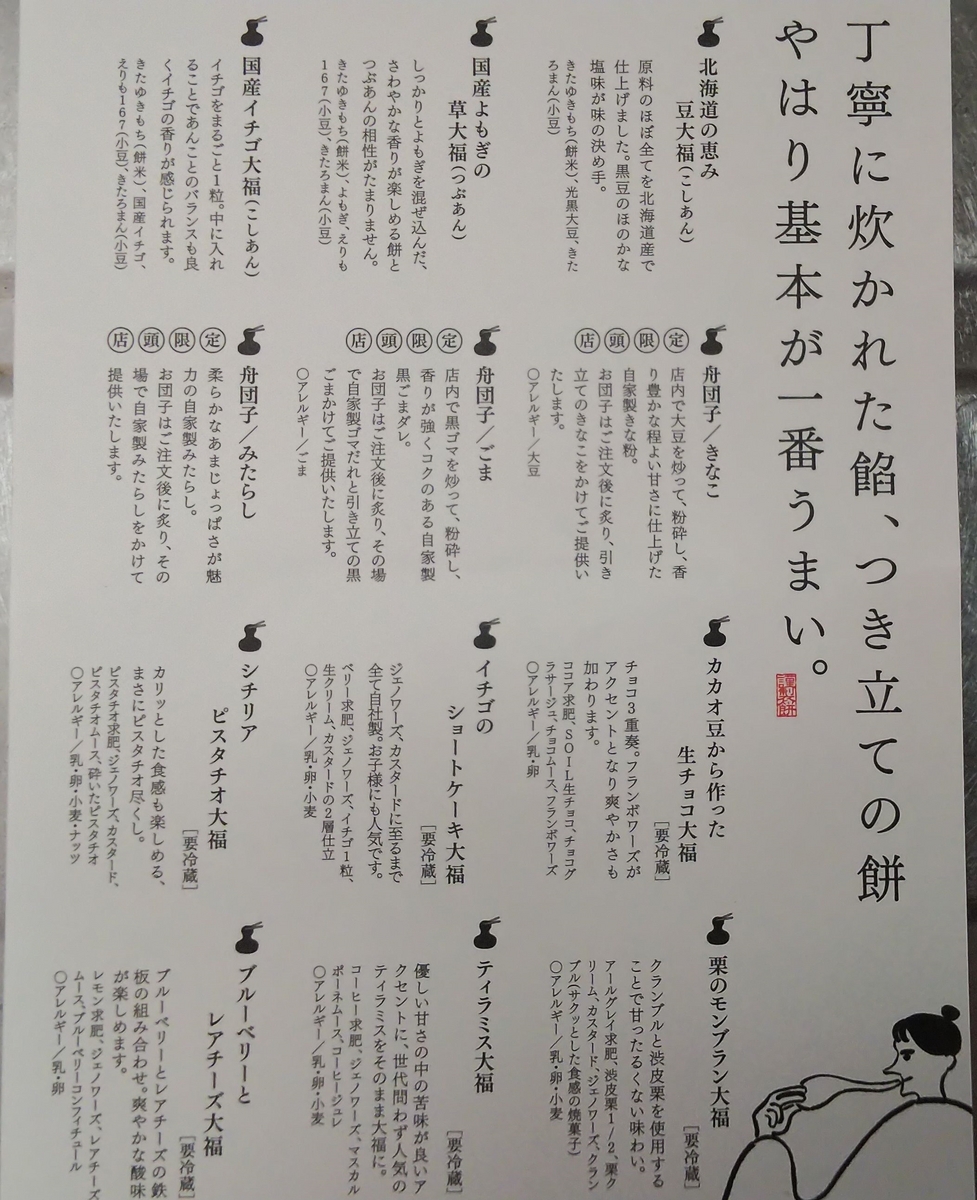 丁寧に炊かれた餡、つき立ての餅
やはり基本が一番うまい。
謹製大福餅
北海道の恵み
豆大福(こしあん)
原料のほぼ全てを北海道産で
仕上げました。黒豆のほのかな
塩味が味の決め手。
きたゆきもち(餅米)、光黒大豆、きた
ろまん(小豆)
国産よもぎの
草大福(つぶあん)
しっかりとよもぎを混ぜ込んだ、
さわやかな香りが楽しめる餅と
つぶあんの相性がたまりません。
きたゆきもち(餅米)、よもぎ、えりも
167(小豆)、きたろまん(小豆)
国産イチゴ大福(こしあん)
イチゴをまるごと1粒。中に入れ
ることであんことのバランスも良
くイチゴの香りが感じられます。
きたゆきもち(餅米)、国産イチゴ、
えりも167(小豆)、きたろまん(小豆)
舟団子/きなこ
店頭限定
店内で大豆を炒って、粉砕し、香
り豊かな程よい甘さに仕上げた
自家製きな粉。
お団子はご注文後に炙り、引き
立てのきなこをかけてご提供い
たします。
〇アレルギー/大豆
舟団子/ごま
店頭限定
店内で黒ゴマを炒って、粉砕し、
香りが強くコクのある自家製
黒ごまダレ。
お団子はご注文後に炙り、その場
で自家製ゴマだれと引き立ての黒
ごまかけてご提供いたします。
〇アレルギー/ごま
舟団子/みたらし
店頭限定
柔らかなあまじょっぱさが魅
力の自家製みたらし。
お団子はご注文後に炙り、その
場で自家製みたらしをかけて
提供いたします。
カカオ豆から作った
生チョコ大福
[要冷蔵]
チョコ3重奏。フランボワーズが
アクセントとなり爽やかさも
加わります。
ココア求肥、SOIL生チョコ、チョコグ
ラサージュ、チョコムース、フランボワーズ
〇アレルギー/乳・卵
イチゴの
ショートケーキ大福
[要冷蔵]
ジェノワーズ、カスタードに至るまで
全て自社製。お子様にも人気です。
ベリー求肥、ジェノワーズ、イチゴ1粒、
生クリーム、カスタードの2層仕立
〇アレルギー/乳・卵・小麦
シチリア
ピスタチオ大福
[要冷蔵]
カリッとした食感も楽しめる、
まさにピスタチオ尽くし。
ピスタチオ求肥、ジェノワーズ、カスタード、
ピスタチオムース、砕いたピスタチオ
〇アレルギー/乳・卵・小麦・ナッツ
栗のモンブラン大福
[要冷蔵]
クランブルと渋皮栗を使用する
ことで甘ったるくない味わい。
アールグレイ求肥、渋皮栗1/2、栗ク
リーム、カスタード、ジェノワーズ、クラン
ブル(サクッとした食感の焼菓子)
〇アレルギー/乳・卵・小麦
ティラミス大福
[要冷蔵]
優しい甘さの中の苦味が良いア
クセントに、世代問わず人気の
ティラミスをそのまま大福に。
コーヒー求肥、ジェノワーズ、マスカル
ポーネムース、コーヒージュレ
〇アレルギー/乳・卵・小麦
ブルーベリーと
レアチーズ大福
[要冷蔵]
ブルーベリーとレアチーズの鉄
板の組み合わせ。爽やかな酸味
が楽しめます。
レモン求肥、ジェノワーズ、レアチーズ
ムース、ブルーベリーコンフィチュール
〇アレルギー/乳・卵